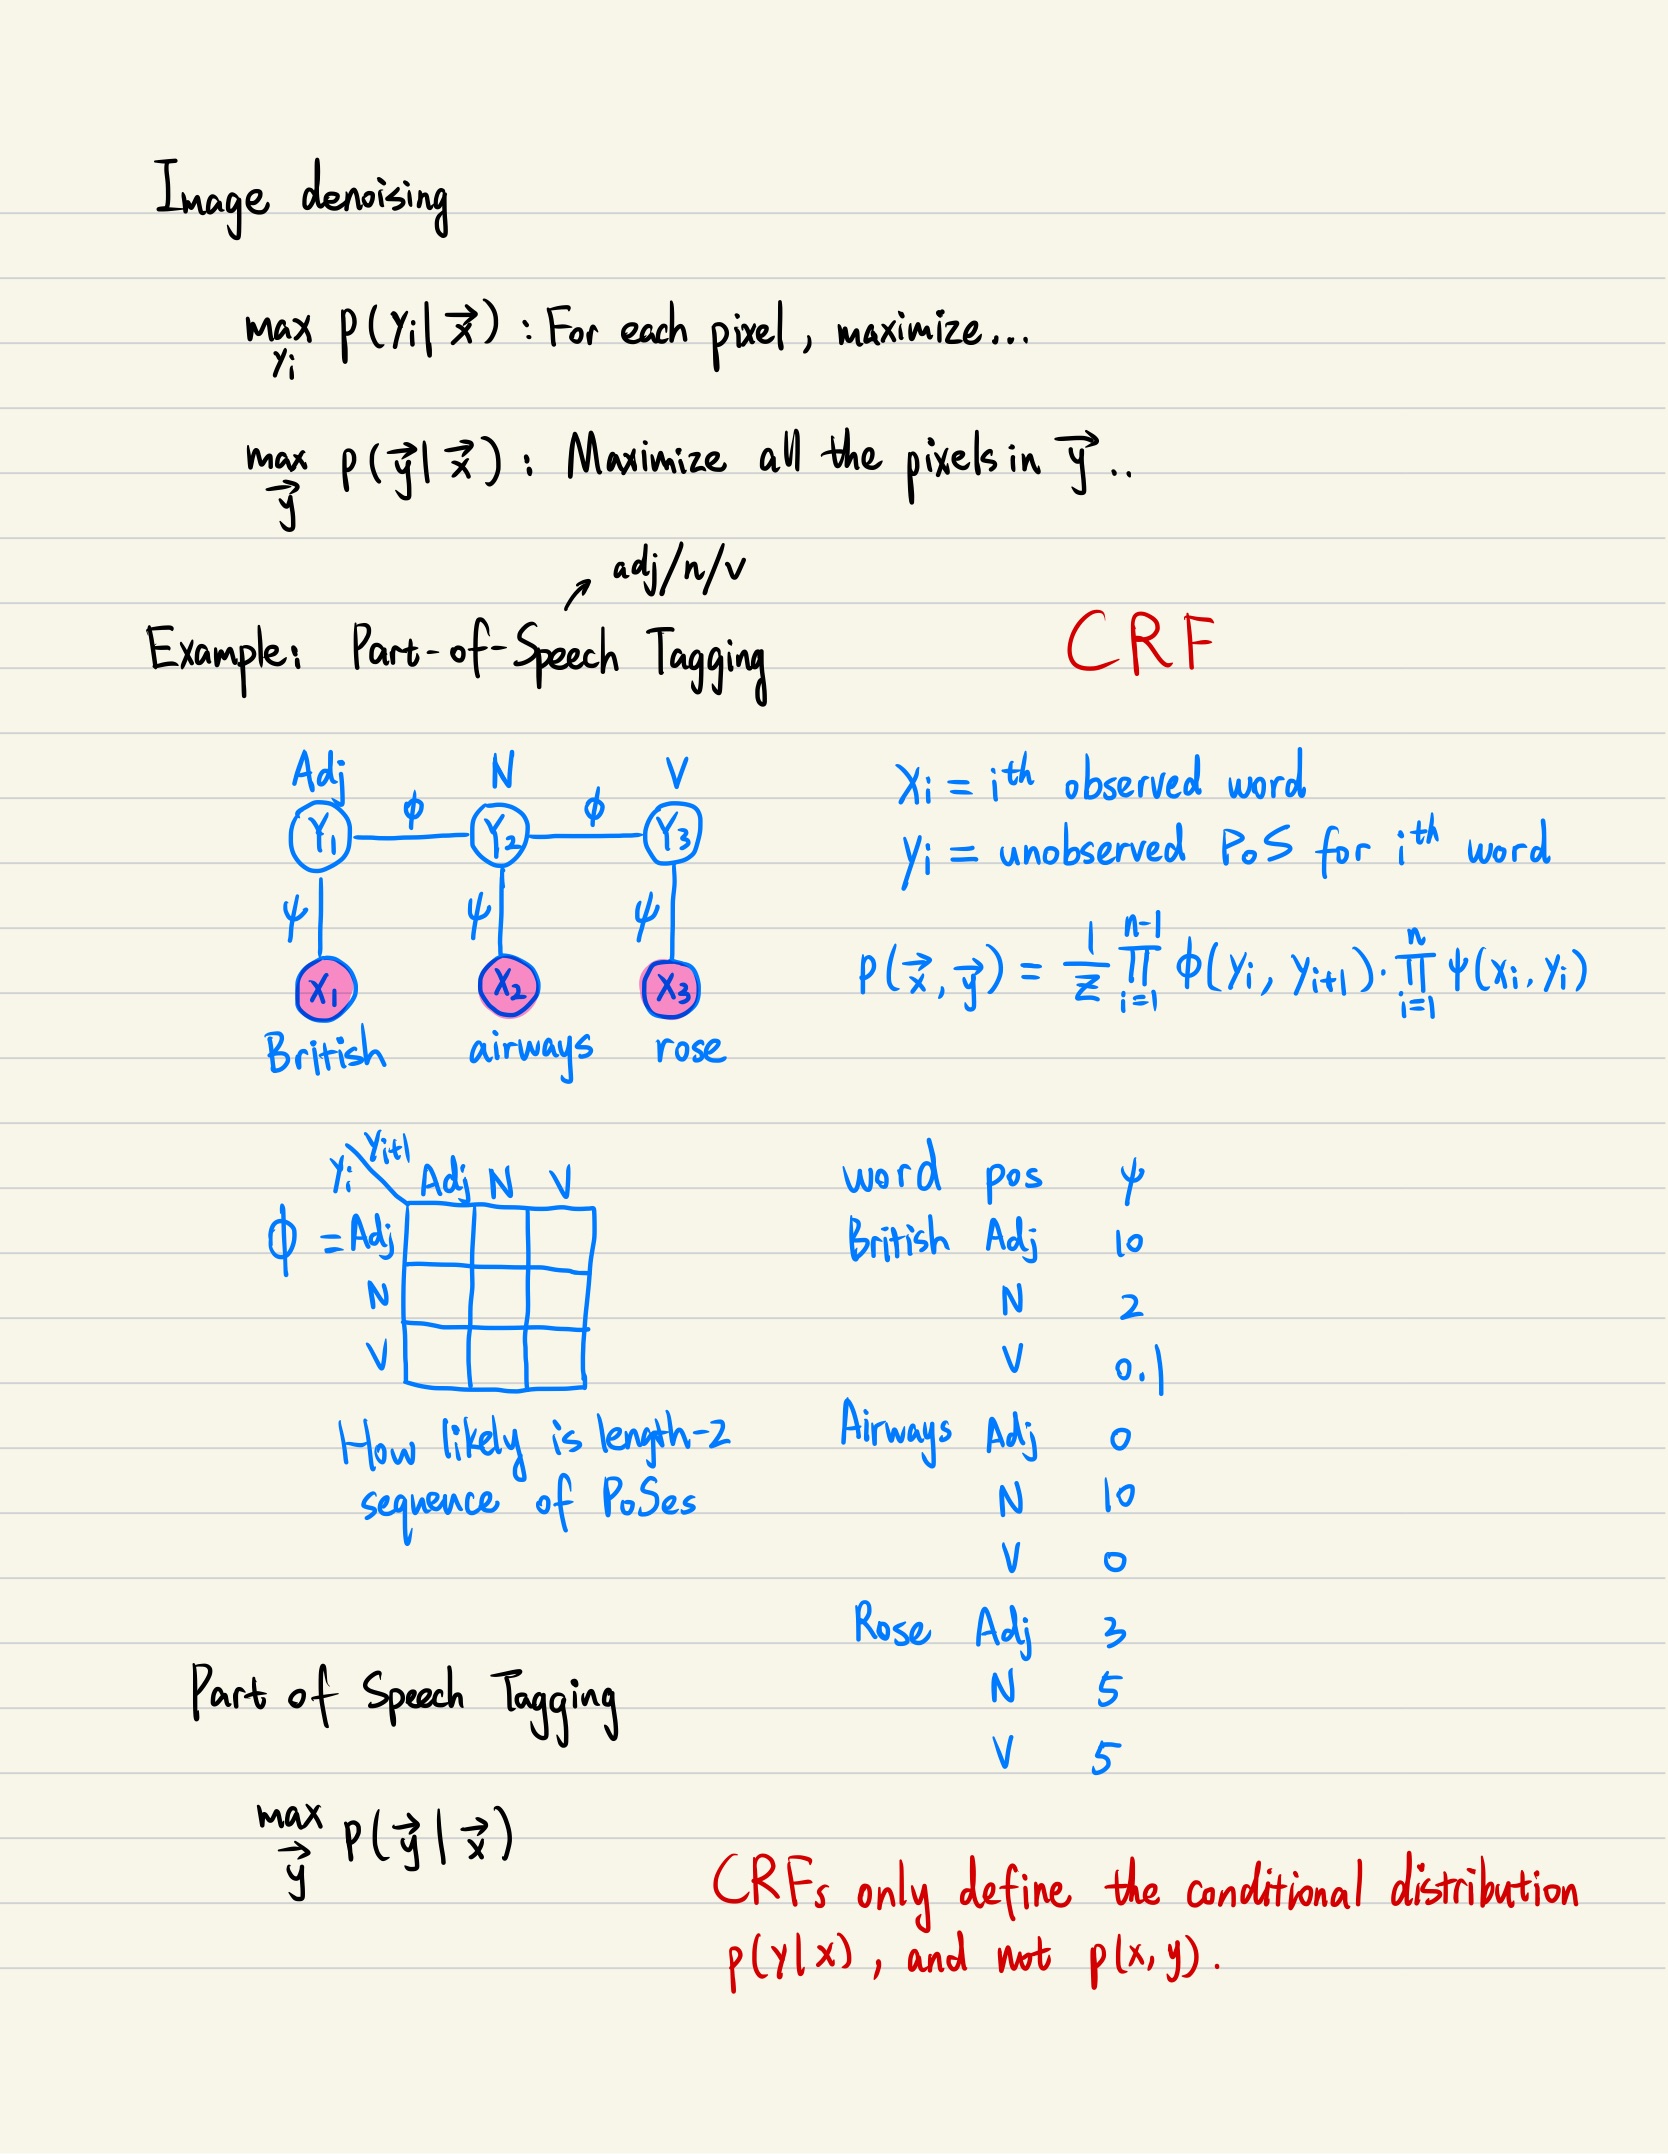 Image denoising
max p(yi | x⃗) : For each pixel, maximize...
yi
max p(y⃗ | x⃗) : Maximize all the pixels in y⃗ ..
y⃗
adj/n/v
Example: Part-of-Speech Tagging
CRF
Adj N V
Y1 ϕ Y2 ϕ Y3
ψ ψ ψ
X1 X2 X3
British airways rose
Xi = ith observed word
yi = unobserved PoS for ith word
p(x⃗, y⃗) = 1/z ∏_{i=1}^{n-1} ϕ(yi, yi+1) · ∏_{i=1}^{n} ψ(xi, yi)
yi yi+1 Adj N V
ϕ = Adj
N
V
How likely is length-2
sequence of PoSes
word pos ψ
British Adj 10
N 2
V 0.1
Airways Adj 0
N 10
V 0
Rose Adj 3
N 5
V 5
Part of Speech Tagging
max p(y⃗ | x⃗)
y⃗
CRFs only define the conditional distribution
p(y|x), and not p(x,y).